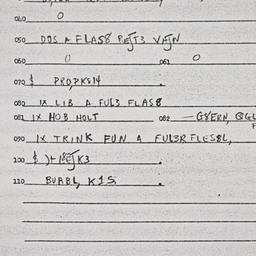 040 0
050 DOS A FLAS8 REJT3 VAJN
060 0 061 0
070 PROPKS14
080 IX LIB A FUL3 FLAS8
081 IX HOB HOLT 082 - G8ERN,
090 IX TRINK FUN A FUL3R FLES8L,
100 K3
110 BUABL, K1S